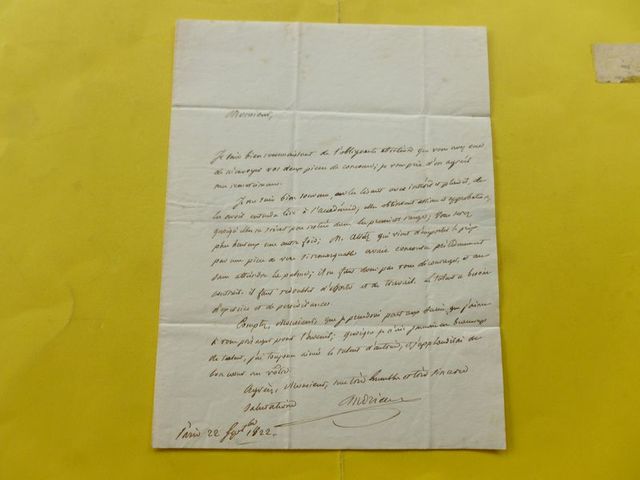 Monsieur,
Je suis bien reconnaissant de l'obligeante attention que vous avez eue
de m'envoyer vos deux pièces de concours; je vous prie d'en agréer
mes remerciemens.
Je me suis bien souvenu, en les lisant avec intérêt et plaisir, de
les avoir entendu lire à l'académie; elles obtinrent estime et approbation,
quoiqu'elles ne soient pas restées dans les premiers rangs; vous serez
plus heureux une autre fois; M. qui vient d'emporter le prix
par une pièce de vers si remarquable avait concouru précédemment
sans atteindre la palme; il ne faut donc pas vous décourager, et au
contraire il faut redoubler d'efforts et de travail. Le talent a besoin
d'exercice et de persévérance.
Comptez, Monsieur, que je prendrai part aux succès que j'aime
à vous présager pour l'avenir; Quoique je n'aie jamais eu beaucoup
de talent, j'ai toujours aimé le talent d'autrui, et j'applaudirai de
bon cœur au vôtre.
Agréez, Monsieur, mes très humbles et très sincères
salutations
Paris 22 1822.